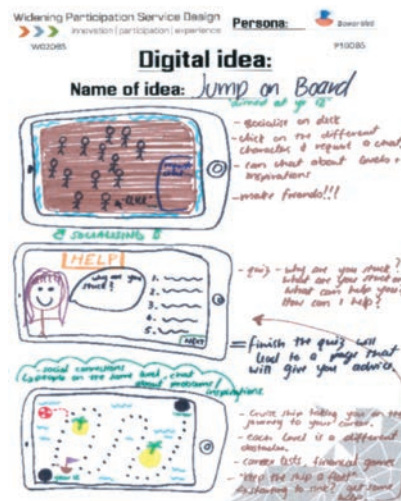 Widening Participation Service Design
innovation | participation | experience
Persona:
W02085
P10085
Digital idea:
Name of idea: Jump on Board
aimed at yr 12
- socialise on deck
- click on the different
characters & request a chat,
- can chat about levels +
inspirations
- make friends!!!
"CLICK"
SOCIALISING
HELP
why are you
stuck?
1.
2.
3.
4.
5.
NEXT
- quiz - why are you stuck?
What are you stuck on
What can help you?
How can I help?
= finish the quiz will
lead to a page that
will give you advice.
- social connections
(people on the same level, chat
about problems/
inspirations
- Cruise ship taking you on the
journey to your career.
- each level is a different
obstacle.
- career tests, financial games
- "keep the ship a float"